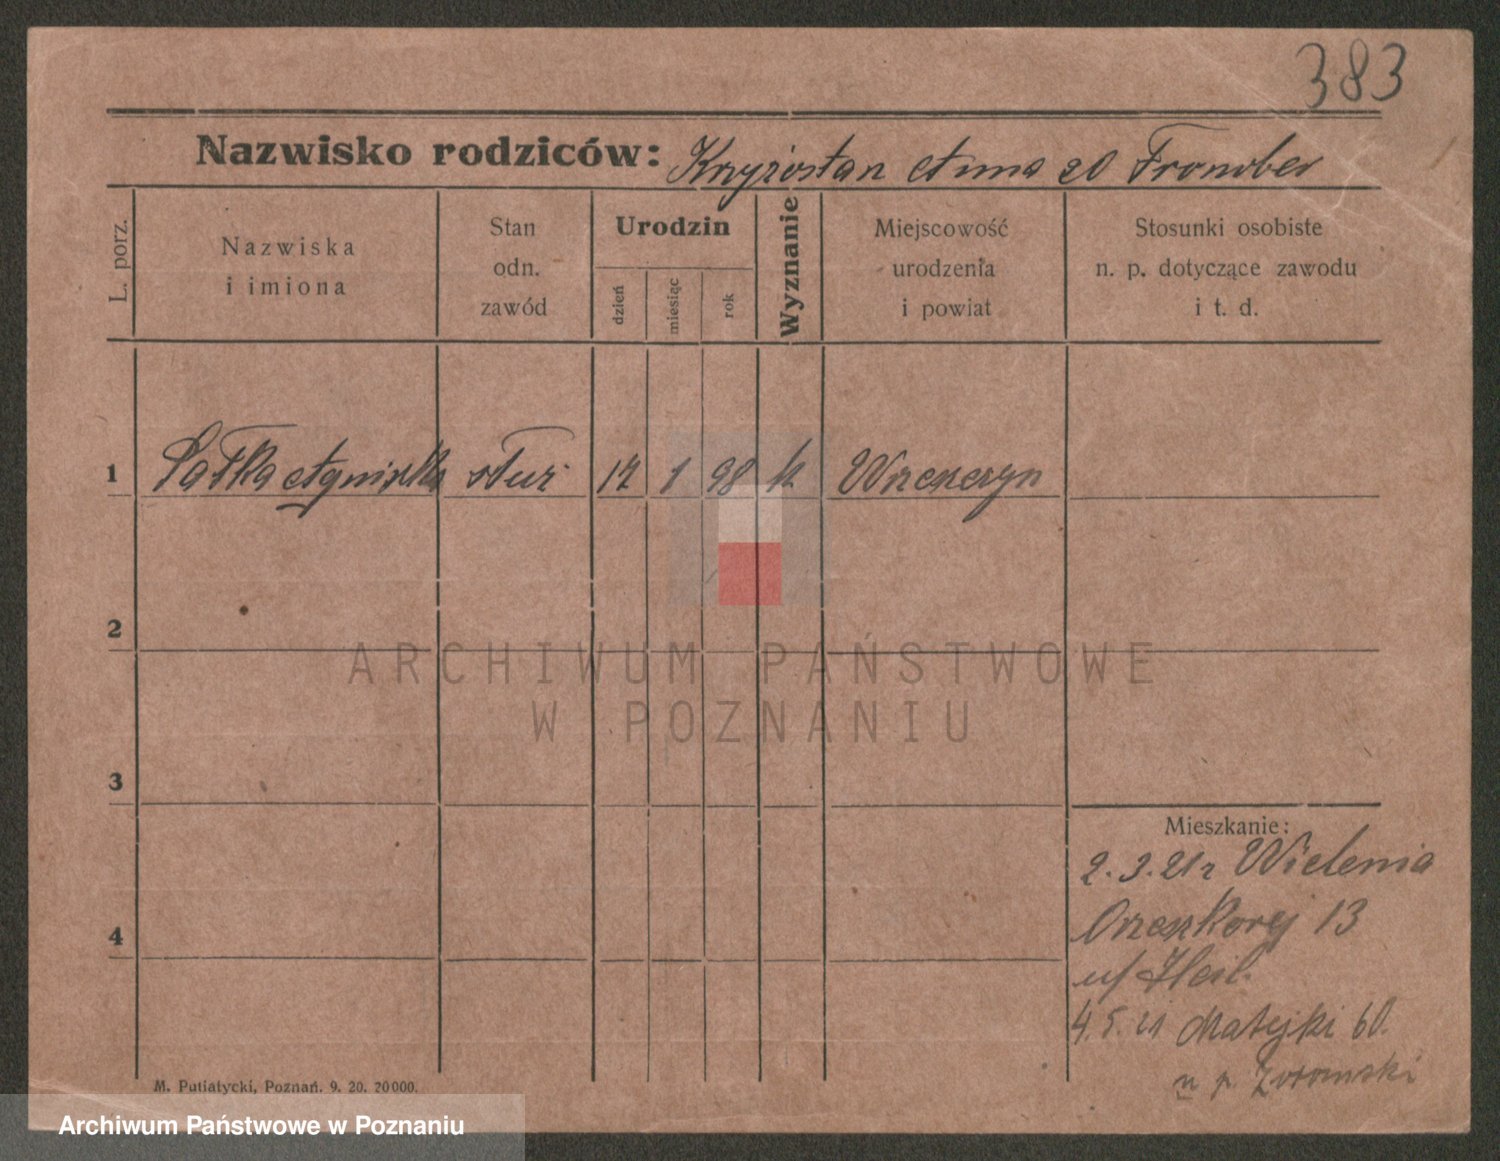 383
Nazwisko rodziców: Krzyżostan Anna zd Fromber
L. porz.
Nazwiska i imiona
Stan odn. zawód
Urodzin
dzień
miesiąc
rok
Wyznanie
Miejscowość urodzenia i powiat
Stosunki osobiste n. p. dotyczące zawodu i t. d.
1 Sałka Agnieszka służ 17 1 98 k
2
3
4
Mieszkanie:
2.3.21r Wielenia
Orzeszkowej 13
u/ Heil.
4.5.21 Matejki 60.
u p.
M. Putiatycki, Poznań. 9. 20. 20000.
ARCHIWUM PAŃSTWOWE
W POZNANIU
Archiwum Państwowe w Poznaniu